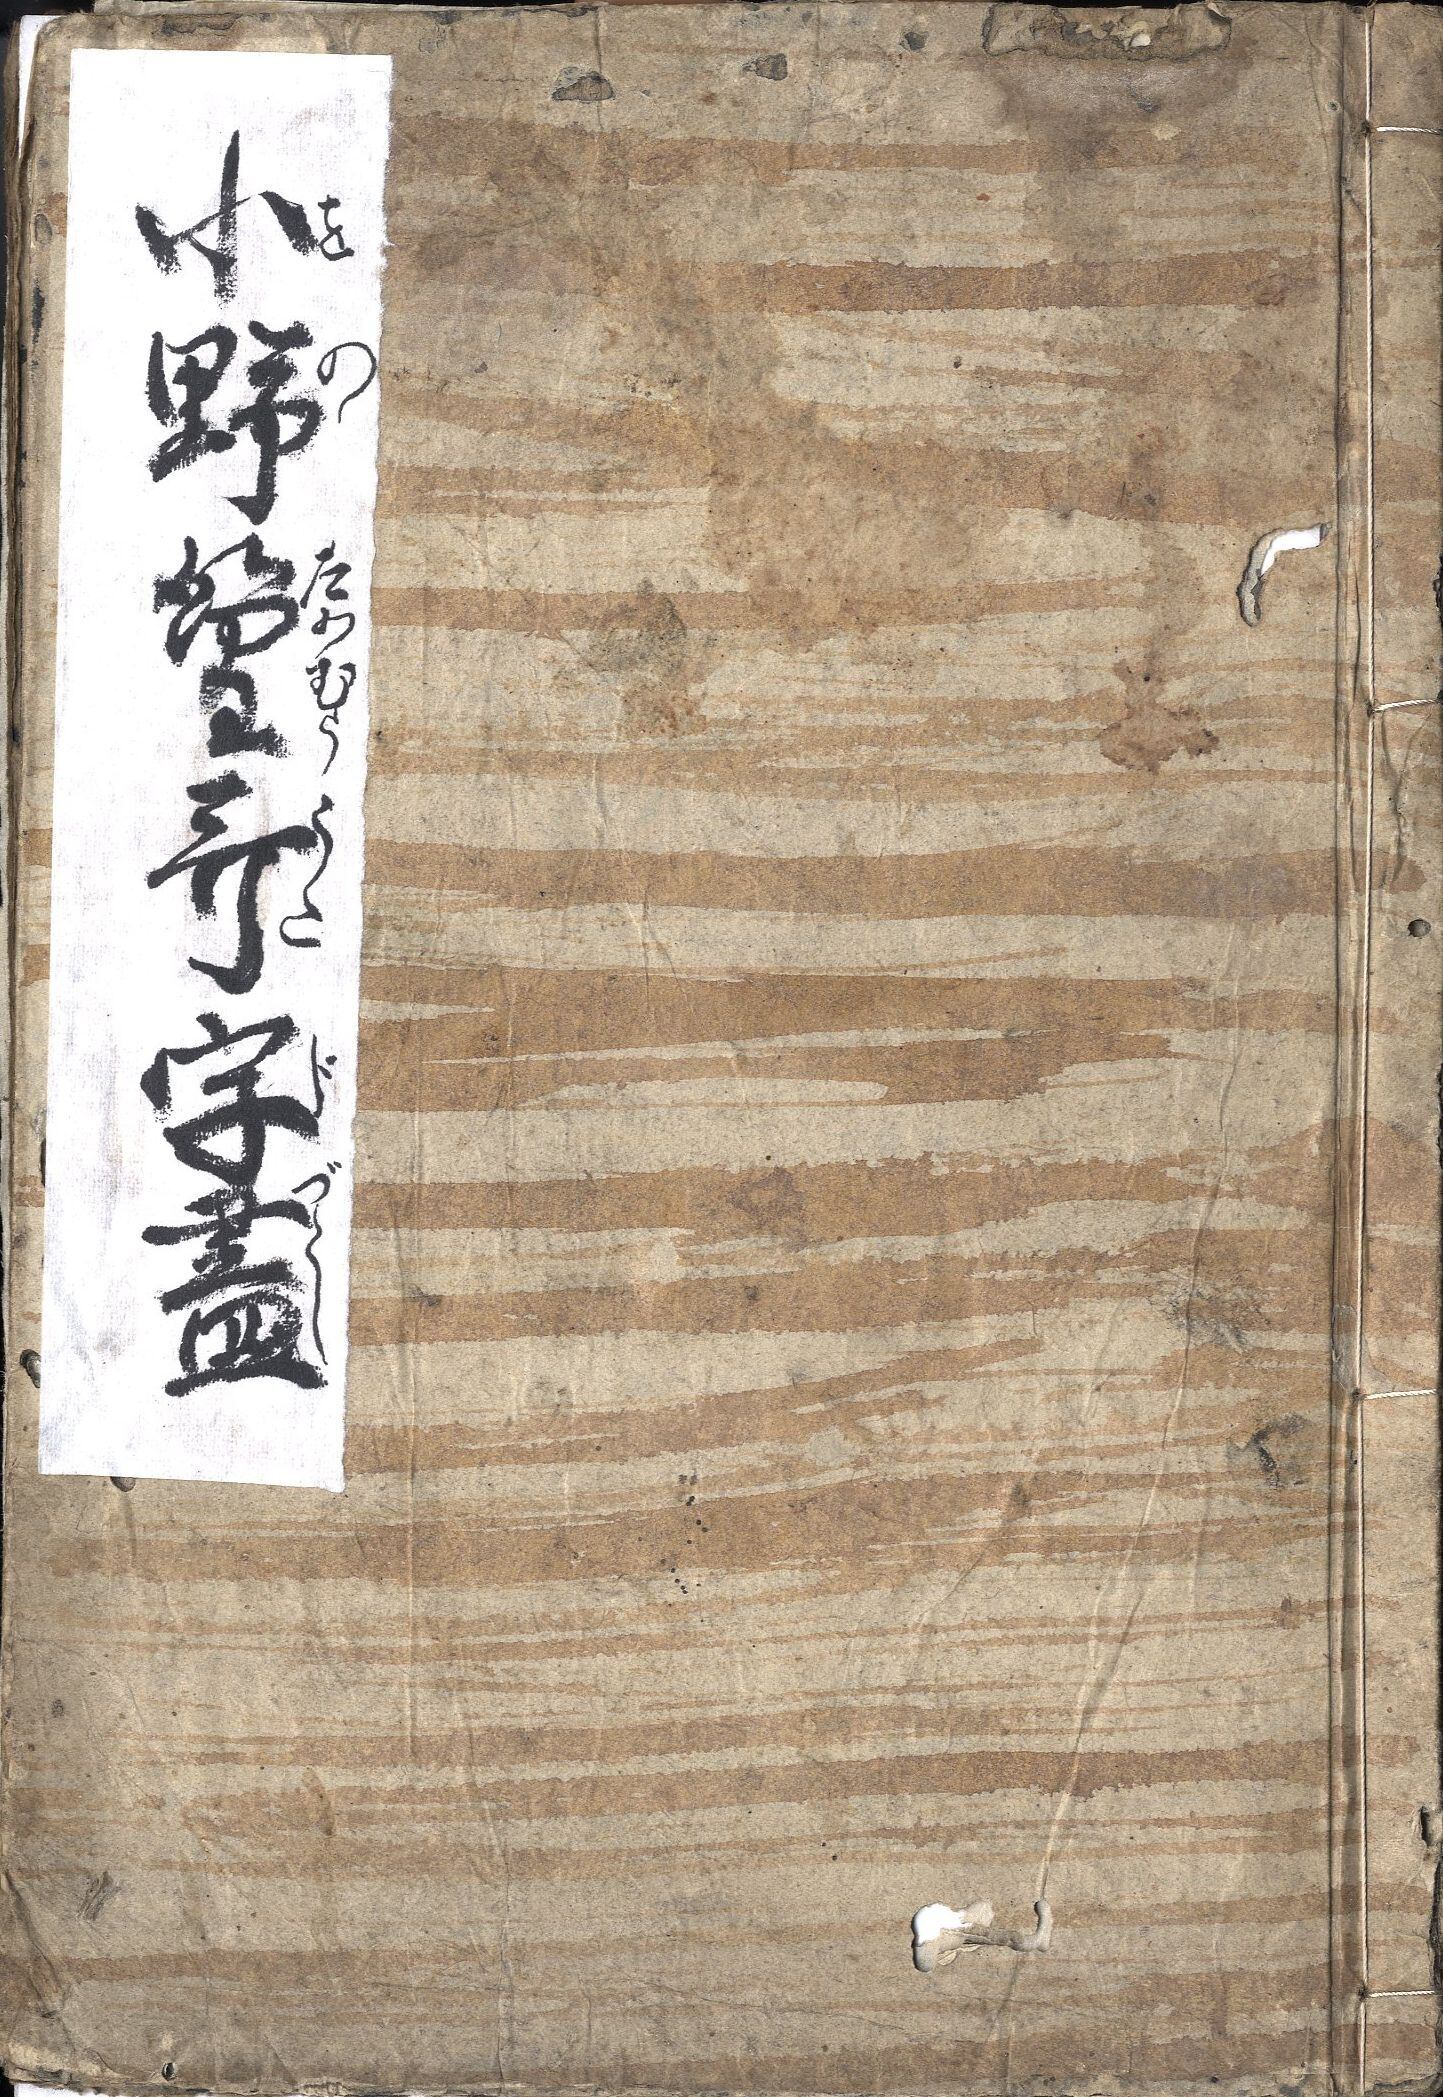 小野篁哥字盡
をのたかむらうたじづくし